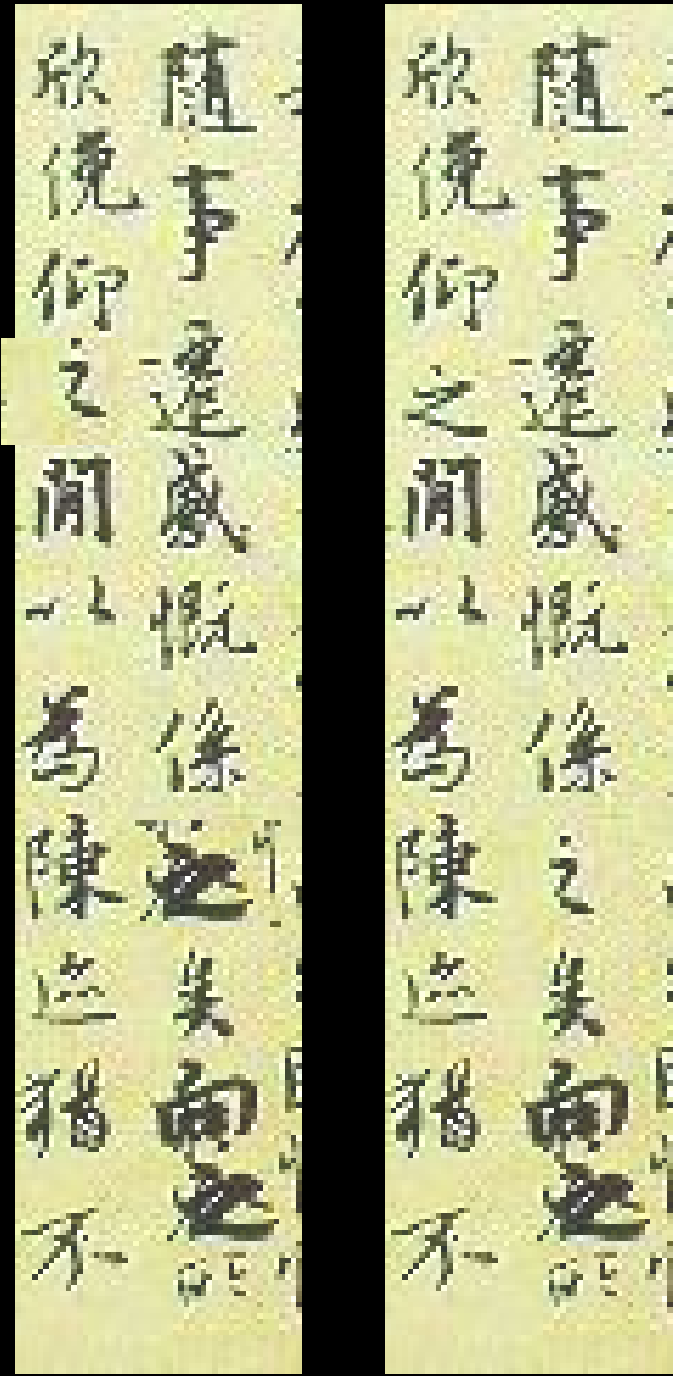 隨事遷感慨係之矣向之所
欣俛仰之閒以為陳迹猶不
隨事遷感慨係之矣向之所
欣俛仰之閒以為陳迹猶不